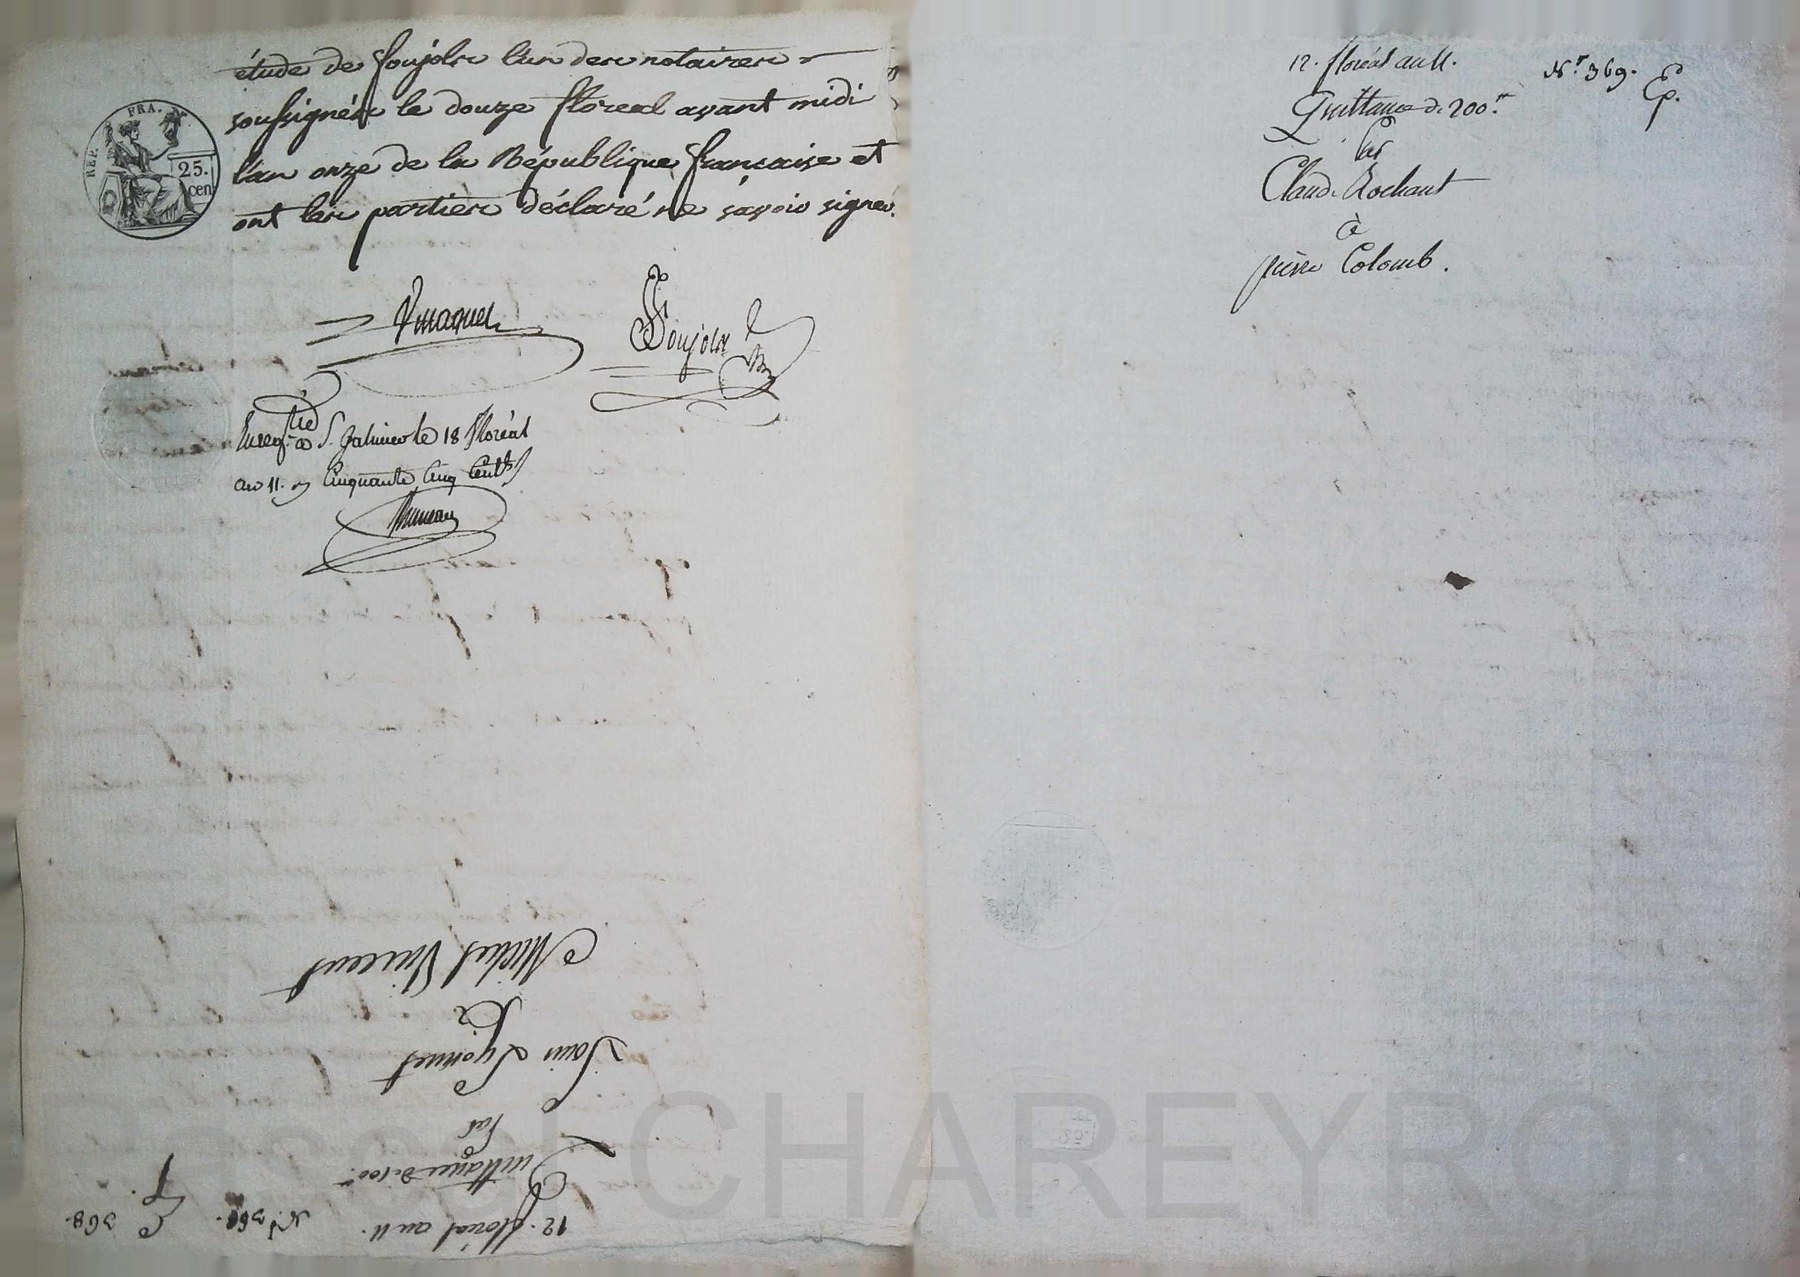 étude de Soujols l'un des notaires
soussignés le douze floreal avant midi
l'an onze de la République française et
ont les parties déclaré ne savoir signer.
REP. FRA.
25.
cen
Soujols
Enreg.tré a S. Galmier le 18 floréal
an 11. Cinquante Cinq Cent.s
Michel Vincent
Loüis Lyonnet
Par
Quittance de 100
12. floréal an 11. N.° 368.
Ep. 368.
12. floréal an 11. N.° 369. Ep.
Quittance de 200.
Par
Claude Rochant
à
pierre Colomb.
CHAREYRON